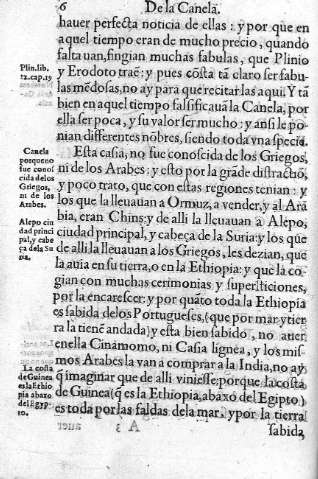 6
De la Canela.
hauer perfecta noticia de ellas : y por que en
aquel tiempo eran de mucho precio, quando
falta uan, fingian muchas fabulas, que Plinio
y Erodoto traẽ: y pues cõsta tã claro ser fabu-
las mẽdosas, no ay para que recitarlas aqui. Y tã
bien en aquel tiempo falsificauã la Canela, por
ella ser poca, y su valor ser mucho: y ansi le po-
nian differentes nõbres, siendo toda vna specia.
Esta casia, no fue conoscida de los Griegos,
ni de los Arabes: y esto por la grãde distractio,
y poco trato, que con estas regiones tenian: y
los que la lleuauan a Ormuz, a vender, y al Ara
bia, eran Chins: y de alli la lleuauan a Alepo,
ciudad principal, y cabeça de la Suria: y los que
de alli la lleuauan a los Griegos, les dezian, que
la auia en su tierra, o en la Ethiopia: y que la co-
gian con muchas cerimonias y supersticiones,
por la encarescer: y por quãto toda la Ethiopia
es sabida de los Portugueses, (que por mar y tier
ra la tienẽ andada) y esta bien sabido, no auer
en ella Cinamomo, ni Casia lignea, y los mis-
mos Arabes la van a comprar a la India, no ay
q̃ imaginar que de alli viniesse: porque la costa
de Guinea (q̃ es la Ethiopia, abaxo del Egipto)
es toda por las faldas de la mar, y por la tierra
sabida,
Plin. lib.
12. cap. 19
Canela
porque no
fue conos
cida de los
Griegos,
ni de los
Arabes.
Alepo ciu
dad princi
pal, y cabe
ça de la Su
ria.
La costa
de Guinea
es la Ethio
pia abaxo
del Egyp-
to.